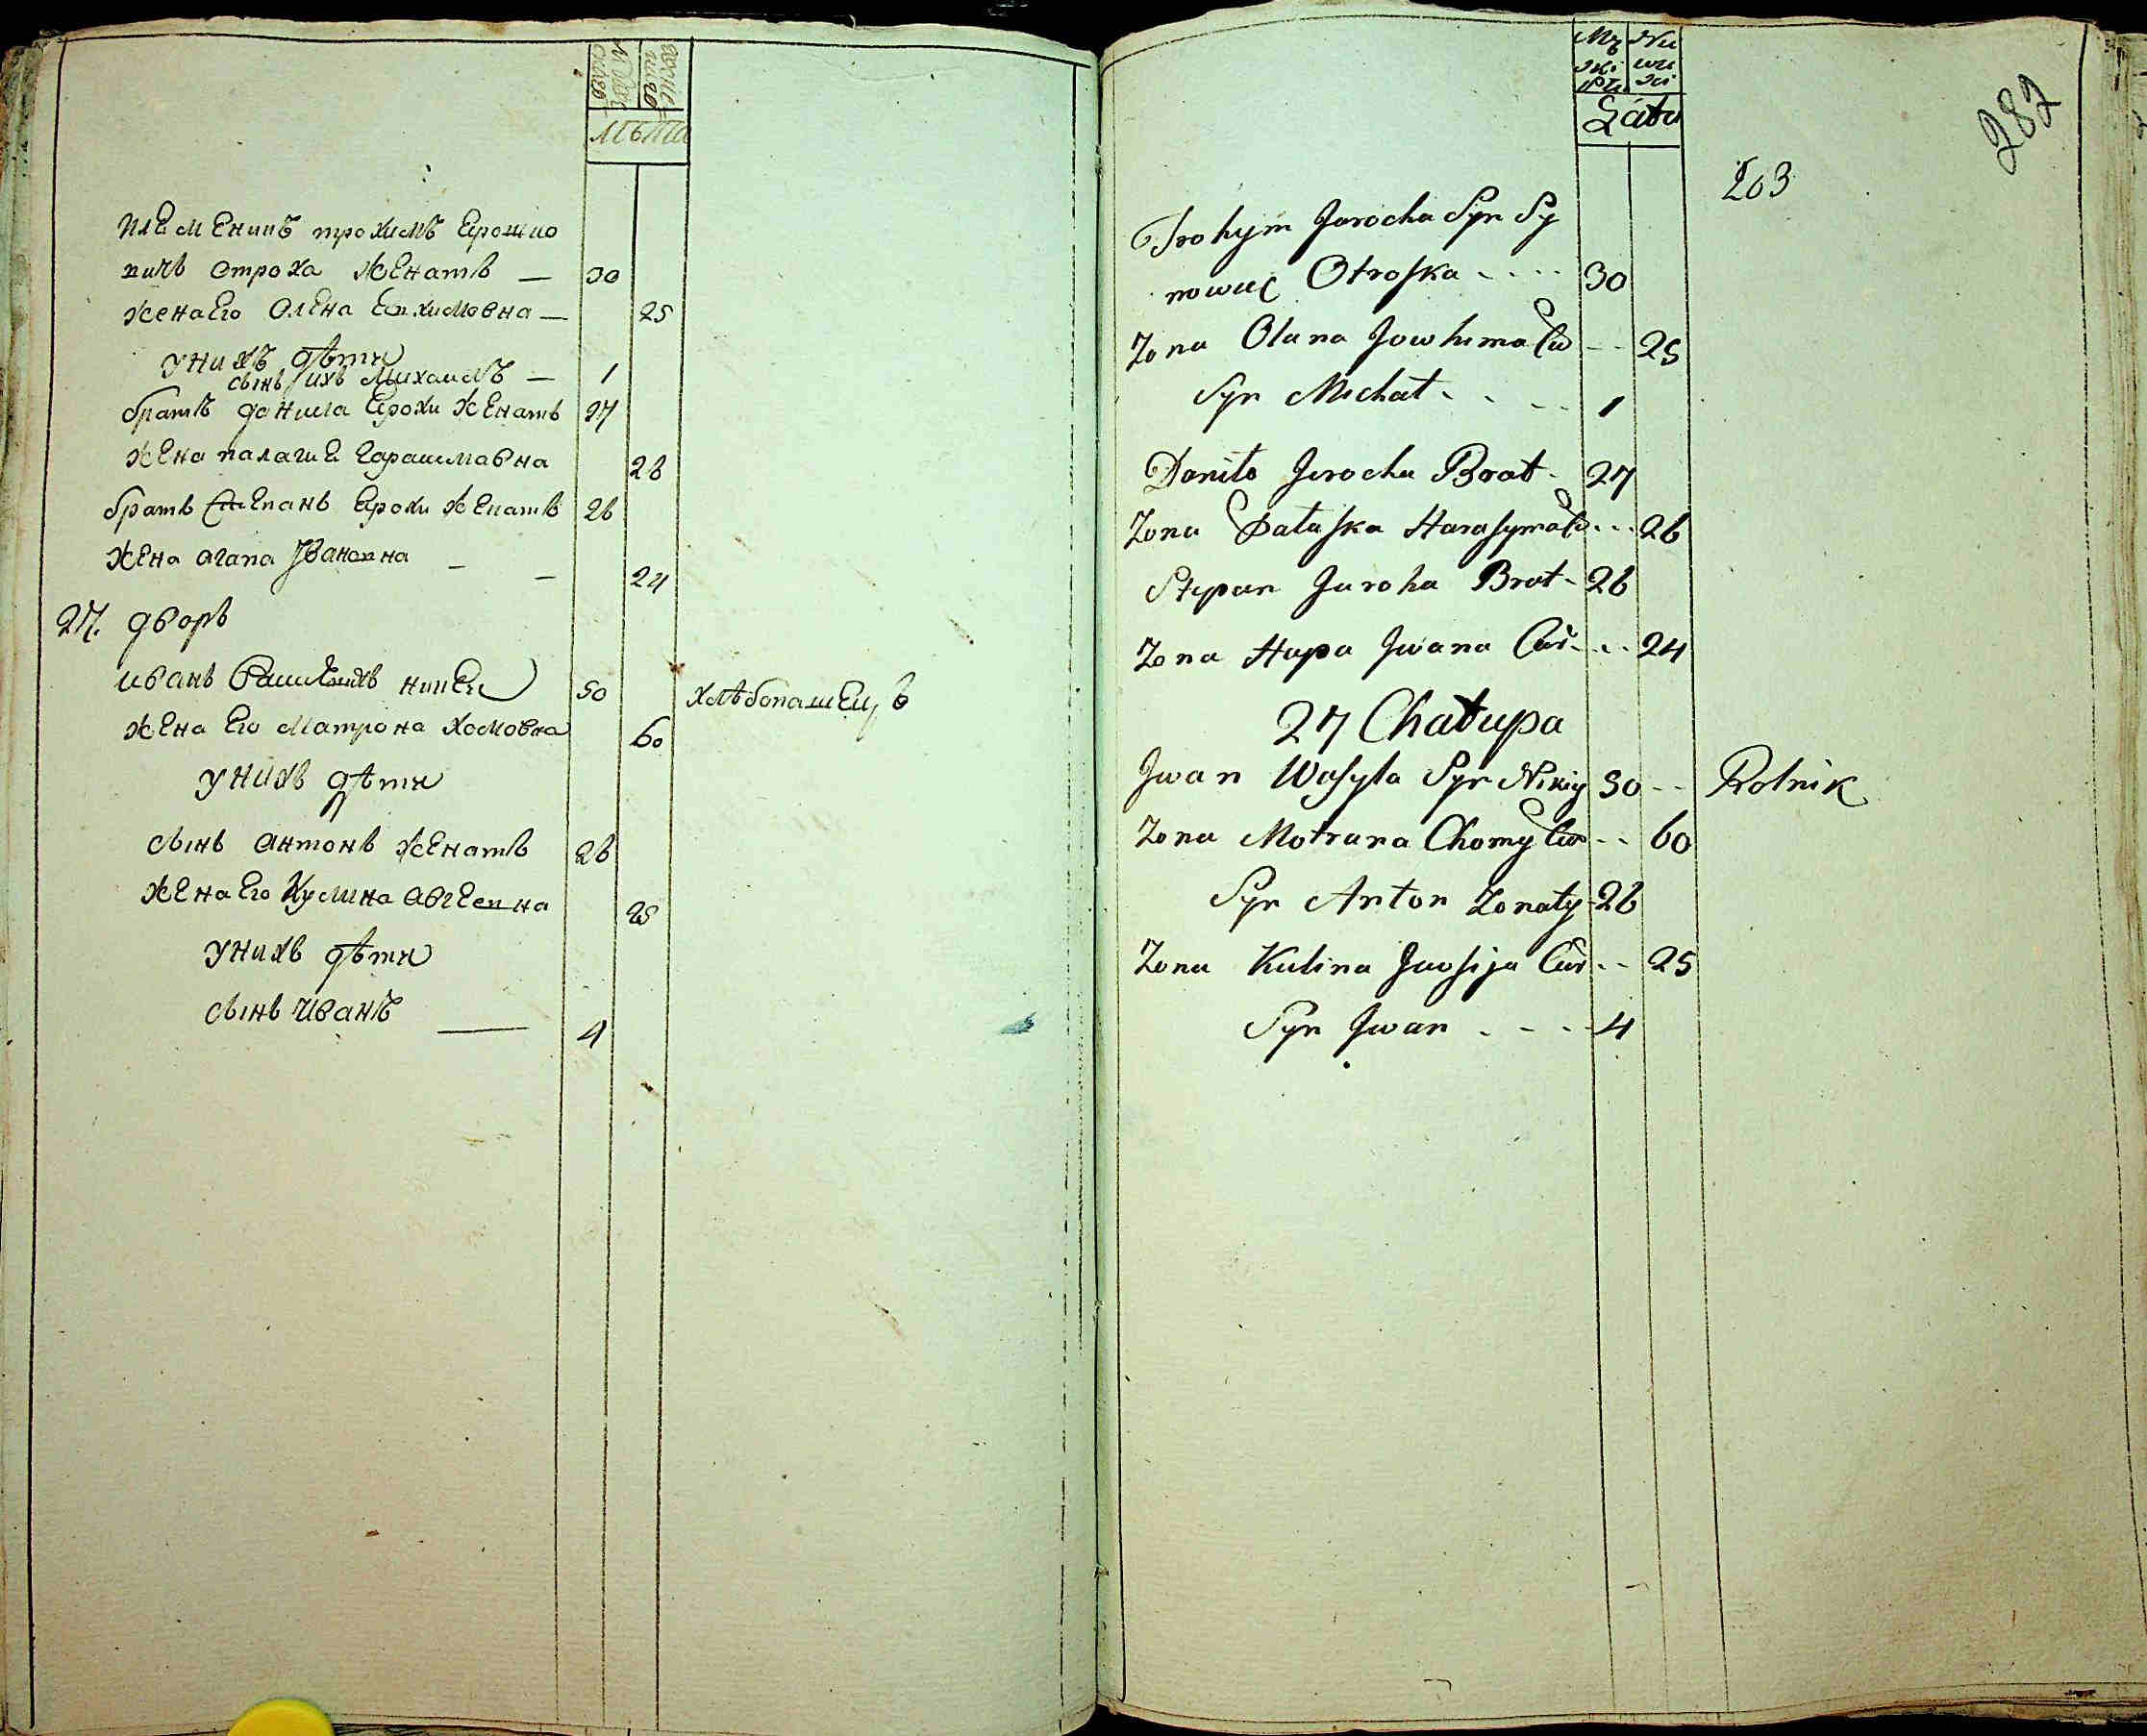 мужеска
женска
лѣта
племеникъ трохимъ Ерошко
вичъ отроха женатъ — 30
жена Его Олена Евхимовна — 25
у нихъ дѣти
сынъ ихъ Михаилъ — 1
братъ данила Ерохи женатъ 27
жена палагия гарашмавна 26
братъ Степанъ Ерохи женатъ 26
жена агапа Ивановна — — 24
27. дворъ
иванъ Василевъ никеи 50 хлѣбопашецъ
жена Его Матрона хомовна 60
у нихъ дѣти
сынъ антонъ женатъ 26
жена Его Кулина авгеевна 25
у нихъ дѣти
сынъ иванъ — 4
Mę Nu
zki wu
Płu zki
Láta
282
203
Trohym Jarocha Syn Sy
nowiec Otroska - - - - 30
Zona Olana Jowhima Cur - - 25
Syn Michał - - - - 1
Daniło Jerocha Brat - 27
Zona Pałaska Harasyma Cur - - - 26
Stepan Jaroha Brat - 26
Zona Hapa Jwana Cur - - - 24
27 Chałupa
Jwan Wasyla Syn Nikiy 50 - - Rolnik
Zona Motruna Chomy Cur - - 60
Syn Anton Zonaty - 26
Zona Kulina Jawsija Cur - - 25
Syn Jwan - - - - 4